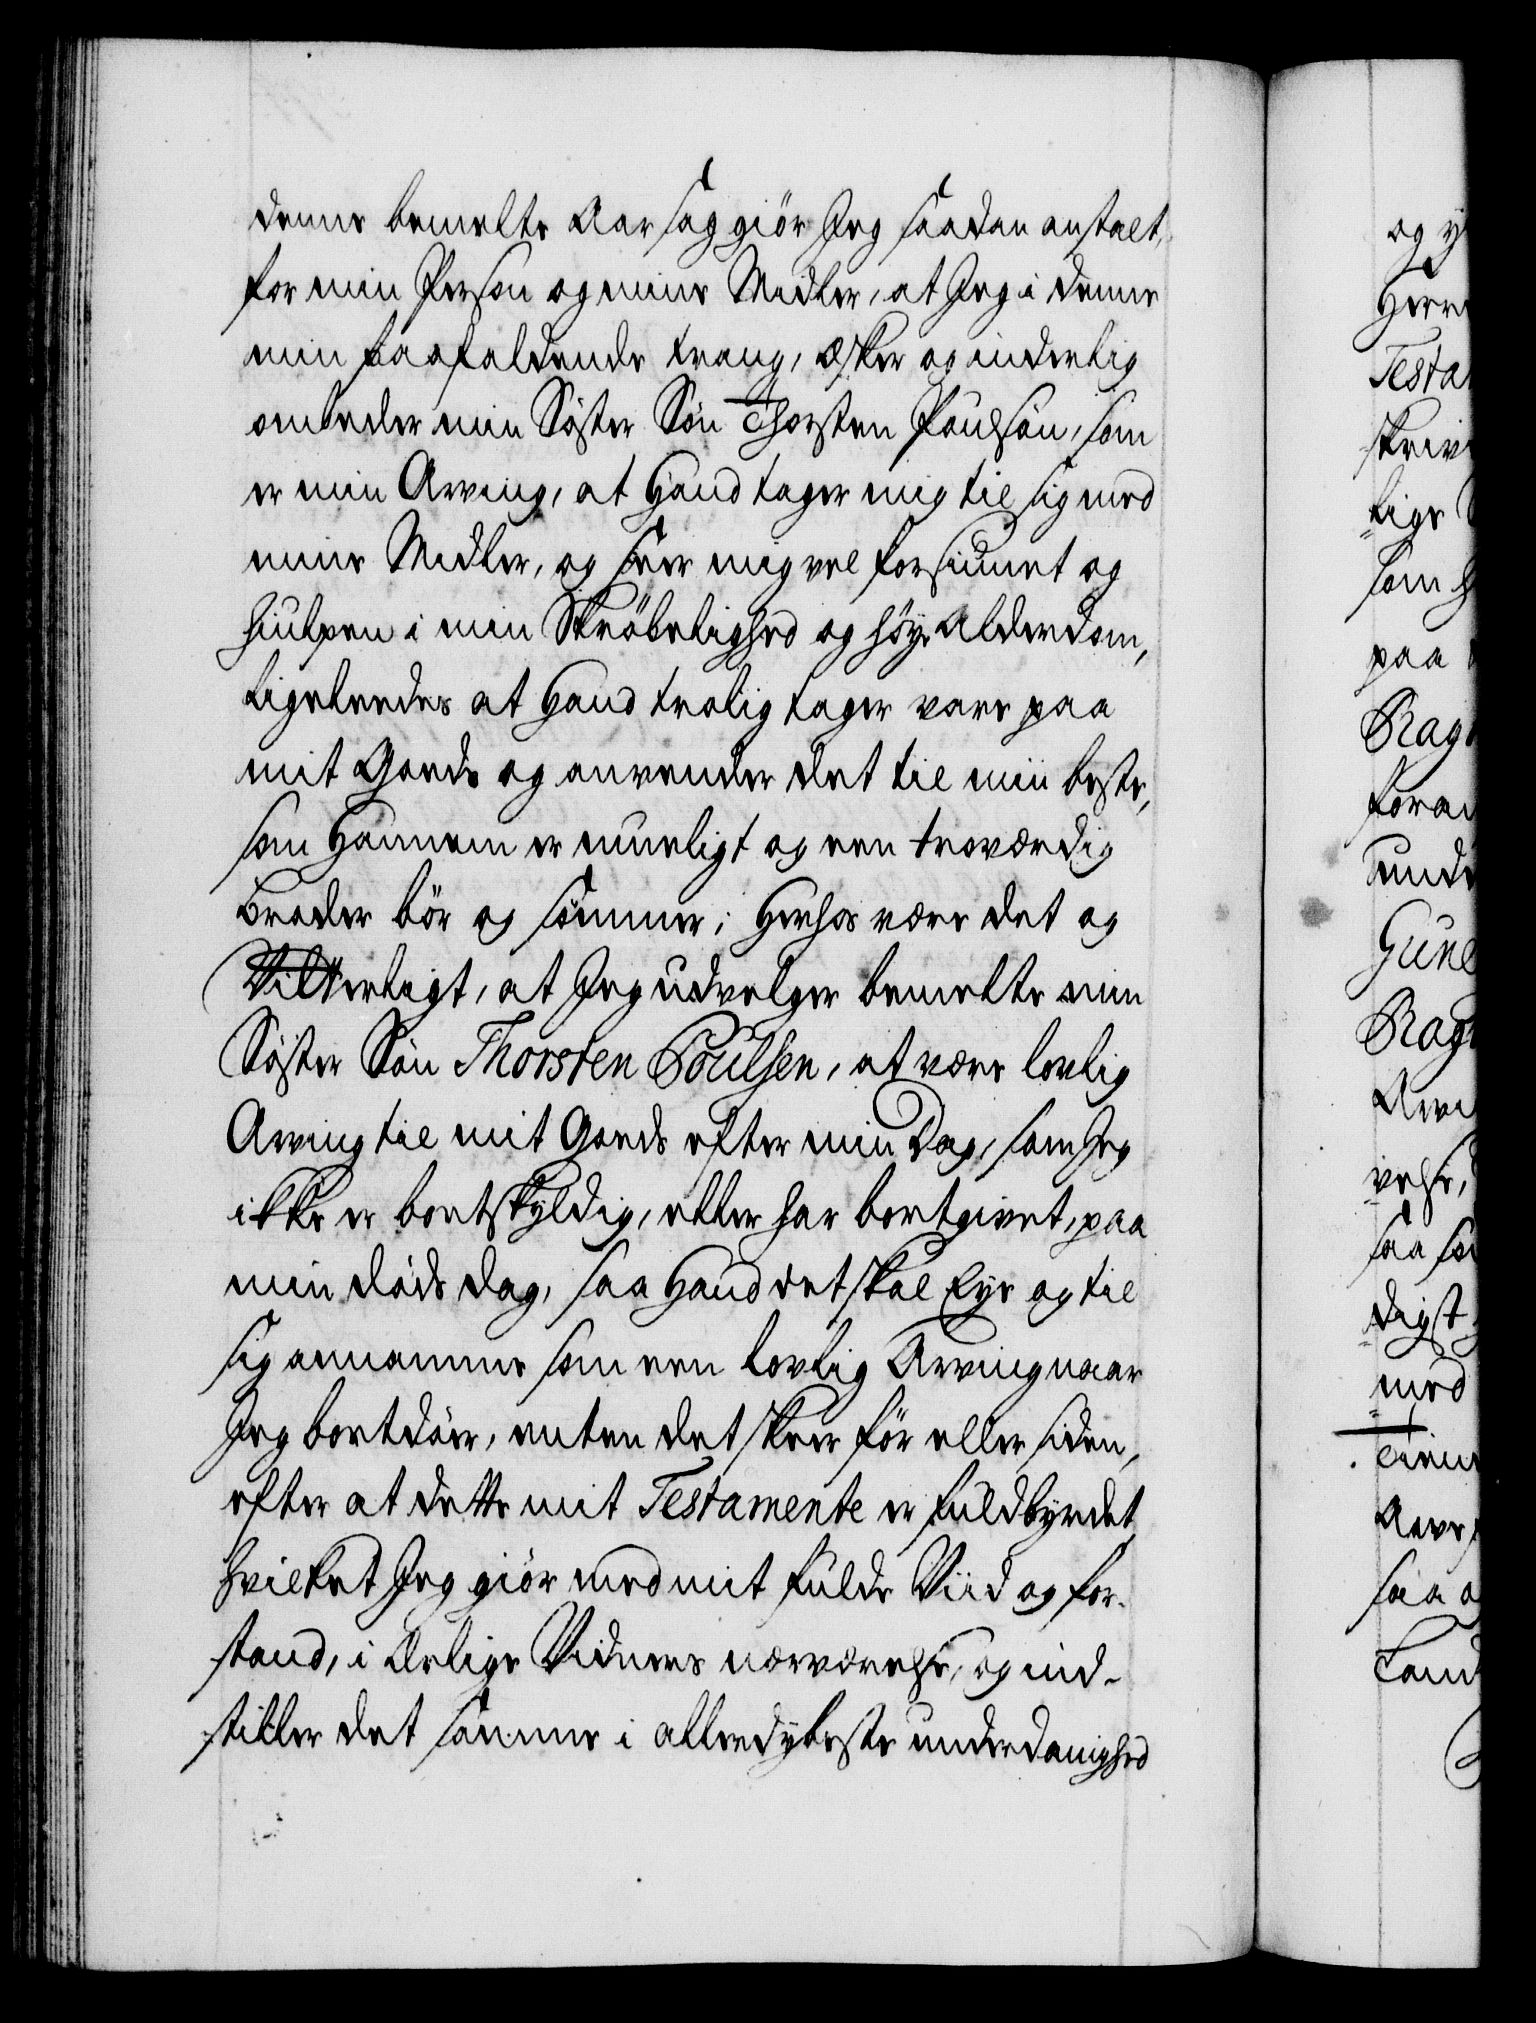 denne bemelte Aarsag giör Jeg saadan anstalt,
for min Person og mine Midler, at Jeg i denne
min paafaldende trang, æsker og inderlig
ombeder min Söster Sön Thorsten Poulsön, som
er min Arving, at Hand tager mig til sig med
mine Midler, og seer mig vel forsiunet og
hiulpen i min Skröbelighed og höye Alderdom,
ligeledes at Hand trolig tager vare paa
mit Goeds og anvender det til mit beste,
som Hannem er mueligt og een troværdig
Broder bör og sömmer; Herhos være det og
Vitterligt, at Jeg udvelger bemelte min
Söster Sön Thorsten Poulsen, at være lovlig
Arving til mit Goeds efter min Dag, som Jeg
ikke er bortskyldig, eller har bortgivet, paa
min döds dag, saa Hand det skal Eye og til
sig annamme som een lovlig Arving naar
Jeg bortdöer, enten det skeer för eller siden,
efter at dette mit Testamente er fuldbyrdet
hvilket Jeg giör med mit fulde Viid og for-
stand, i Ærlige Vidners nærværelse, og ind-
stiller det samme i allerdybeste underdanighed
og
Herr
Testa
skriv
lige
som
paa
Rag
foran
unde
Gunl
Rag
Arvi
velse,
saa
digst
med
saa